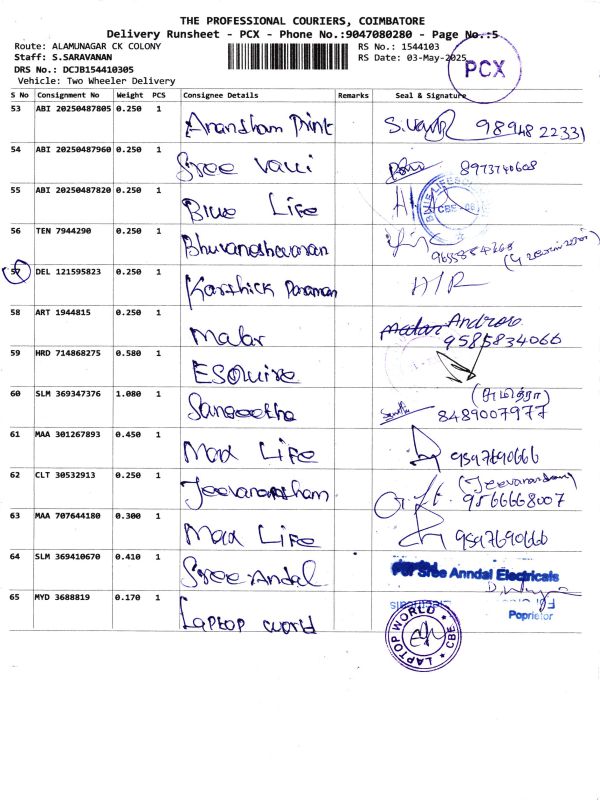 THE PROFESSIONAL COURIERS, COIMBATORE
Delivery Runsheet - PCX - Phone No.:9047080280 - Page No.:5
Route: ALAMUNAGAR CK COLONY
RS No.: 1544103
Staff: S.SARAVANAN
RS Date: 03-May-2025
DRS No.: DCJB154410305
Vehicle: Two Wheeler Delivery
PCX
S No Consignment No Weight PCS Consignee Details Remarks Seal & Signature
53 ABI 20250487805 0.250 1 Anansham Print 9894822331
54 ABI 20250487960 0.250 1 Sree Valli 8973740608
55 ABI 20250487820 0.250 1 Blue Life
56 TEN 7944290 0.250 1 Bhuvaneshwaran
57 DEL 121595823 0.250 1 Karthick Paraman H/R
58 ART 1944815 0.250 1 Malar Andrews
9585834066
59 HRD 714868275 0.580 1 ESQuire
60 SLM 369347376 1.080 1 Sangeetha (சுமித்ரா)
8489007977
61 MAA 301267893 0.450 1 Max Life 9597690666
62 CLT 30532913 0.250 1 Jeevanantham (Jeevanandam)
9566668007
63 MAA 707644180 0.300 1 Max Life 9597690666
64 SLM 369410670 0.410 1 Sree Andal For Sree Anndal Electricals
Poprietor
65 MYD 3688819 0.170 1 Laptop world
LAPTOP WORLD CBE